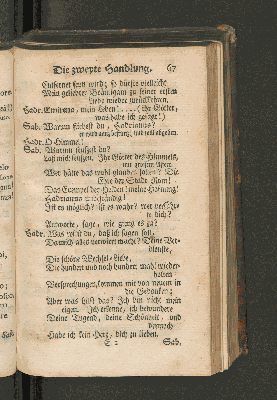 Die zweyte Handlung. 67
Entfernet seyn wird; so dürfte vielleicht
Mein geliebter Bräutigam zu seiner ersten
Liebe wieder zurückkehren.
Hadr. Emirena, mein Leben! ... (Ihr Götter,
was habe ich gesagt!)
Sab. Warum fliehest du, Hadrianus?
er wird ganz bestürzt, und will abgehen.
Hadr. O Himmel!
Sab. Warum seufzest du?
Laß mich seufzen. Ihr Götter des Himmels,
Wer hätte das wohl glauben sollen? Die
Ehre der Stadt Rom!
Das Exempel der Helden! meine Hofnung!
Hadrianus unbeständig!
Ist es möglich? ist es wahr? wer verführte
te dich?
Antworte, sage, wie gieng es zu?
Hadr. Was willst du, daß ich sagen soll,
Da mich alles verwirrt macht? Deine Ver-
dienste,
Die schöne Wechsel-Liebe,
Die hundert und noch hundert mahl wieder-
holten
Versprechungen, kommen mir von neuen in
die Gedanken;
Aber was hilft das? Ich bin nicht mein
eigen. Ich erkenne, ich bewundere
Deine Tugend, deine Schönheit, und
dennoch
Habe ich kein Herz, dich zu lieben.
E 2 Sab.